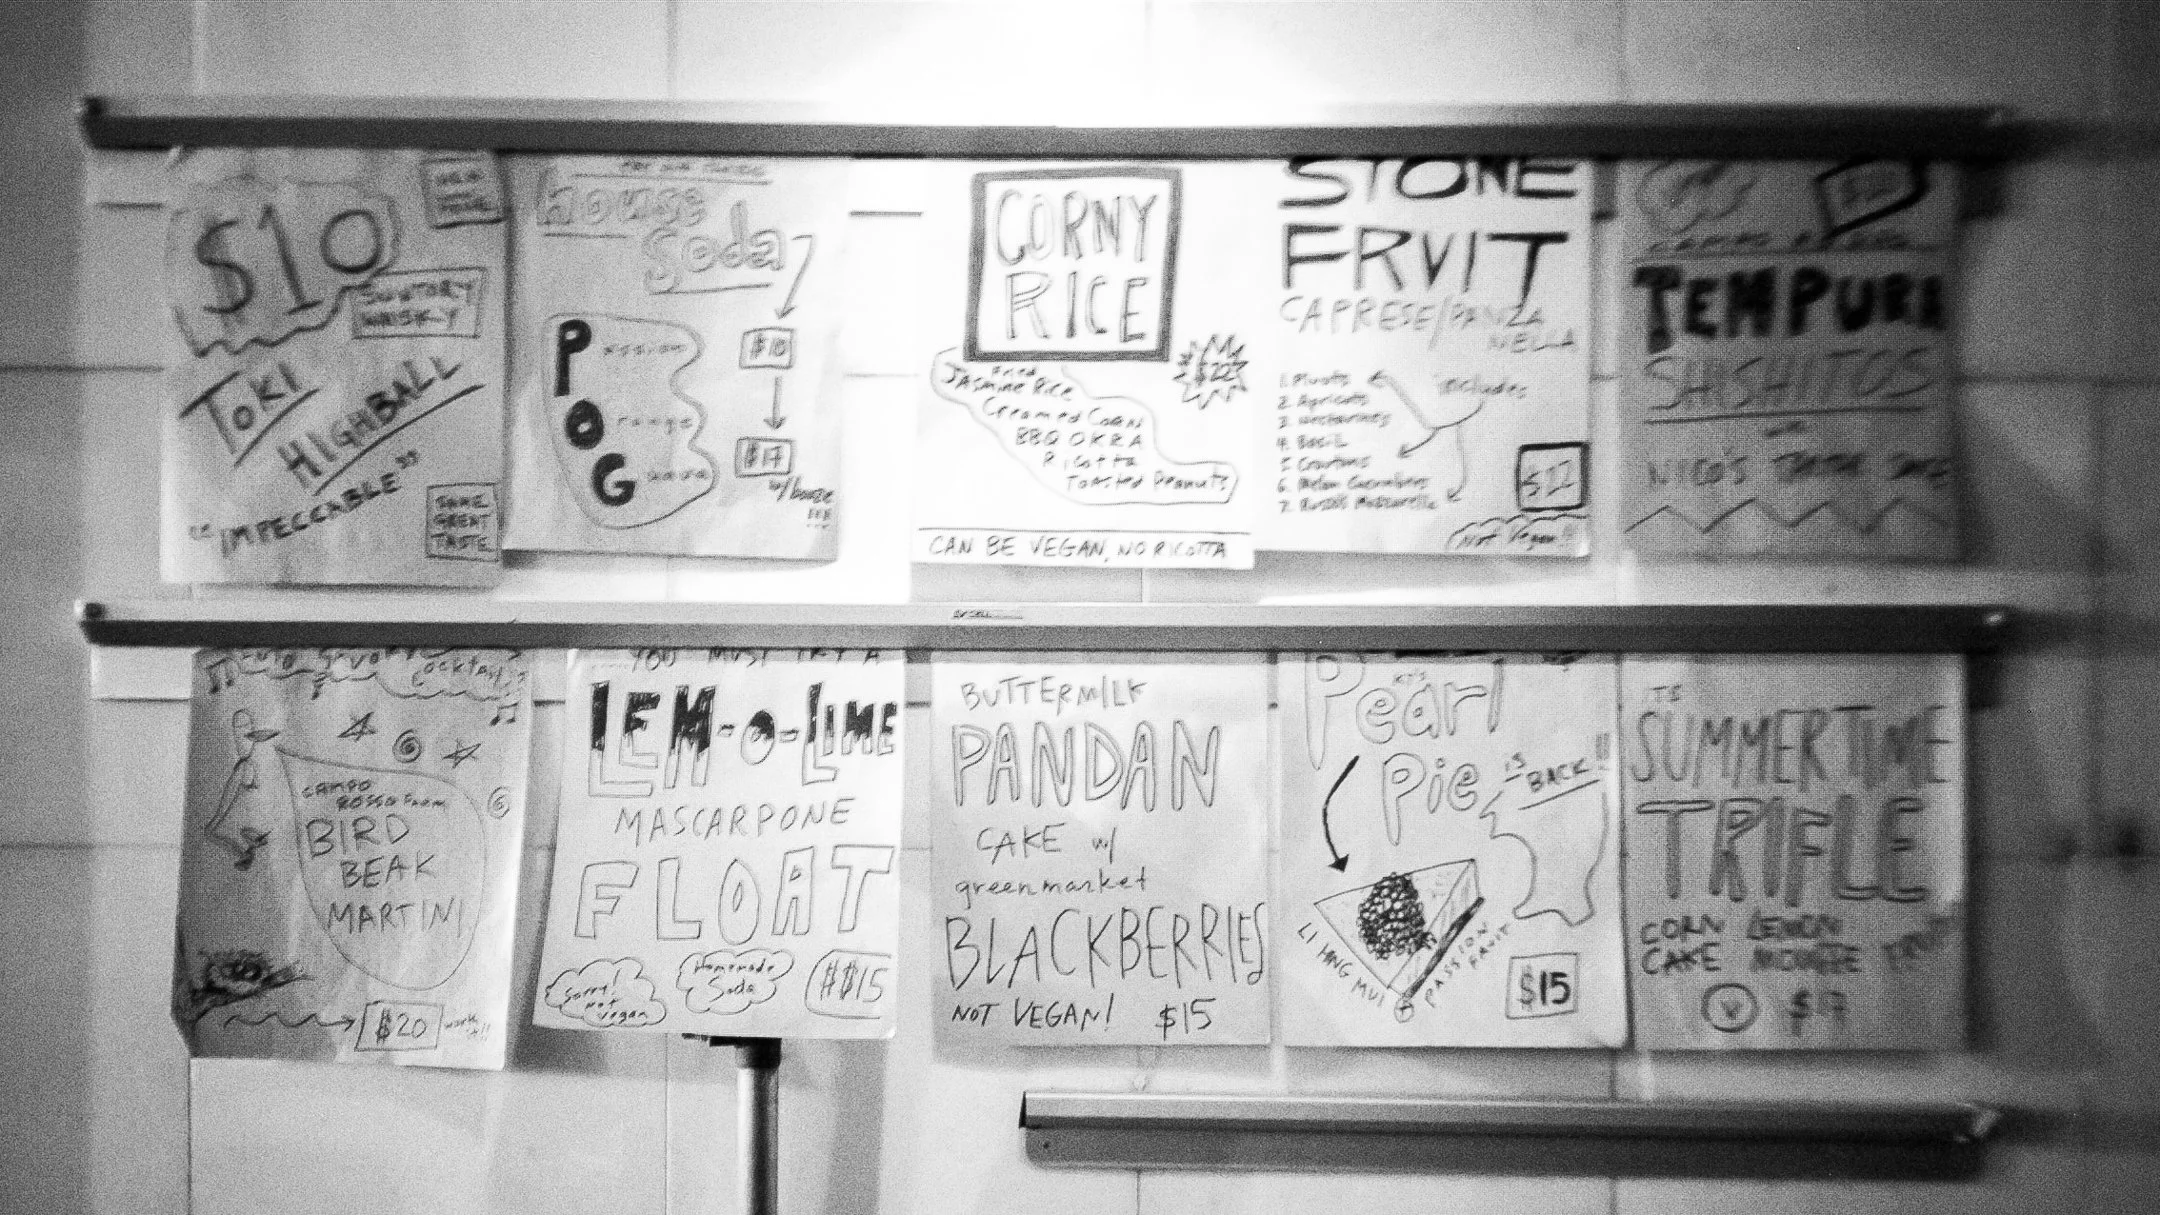 $10
SUNTORY
WHISKY
TOKI
HIGHBALL
"IMPECCABLE"
SAME
GREAT
TASTE
house
soda
Passion
Orange
Guava
$10
$17
w/booze
!!!
CORNY
RICE
$22
Fried
Jasmine Rice
Creamed Corn
BBQ OKRA
Ricotta
Toasted Peanuts
CAN BE VEGAN, NO RICOTTA
STONE
FRUIT
CAPRESE/PANZA
NELLA
includes
1. Pluots
2. Apricots
3. Nectarines
4. Basil
5. Croutons
6. Melon Cucumbers
7. Mozzarella
$22
(Not Vegan!!)
TEMPURA
SHISHITOS
NICO'S
Savory Cocktails
CAMPO
ROSSO From
BIRD
BEAK
MARTINI
$20
worth
it!!
YOU MUST TRY A
LEM-O-LIME
MASCARPONE
FLOAT
Sorry!
not
vegan
Homemade
Soda
$15
BUTTERMILK
PANDAN
CAKE w/
greenmarket
BLACKBERRIES
NOT VEGAN! $15
Pearl
Pie
is
BACK!!
LI HING MUI
+
PASSION
FRUIT
$15
ITS
SUMMERTIME
TRIFLE
CORN LEMON
CAKE MOUSSE FRUIT
V